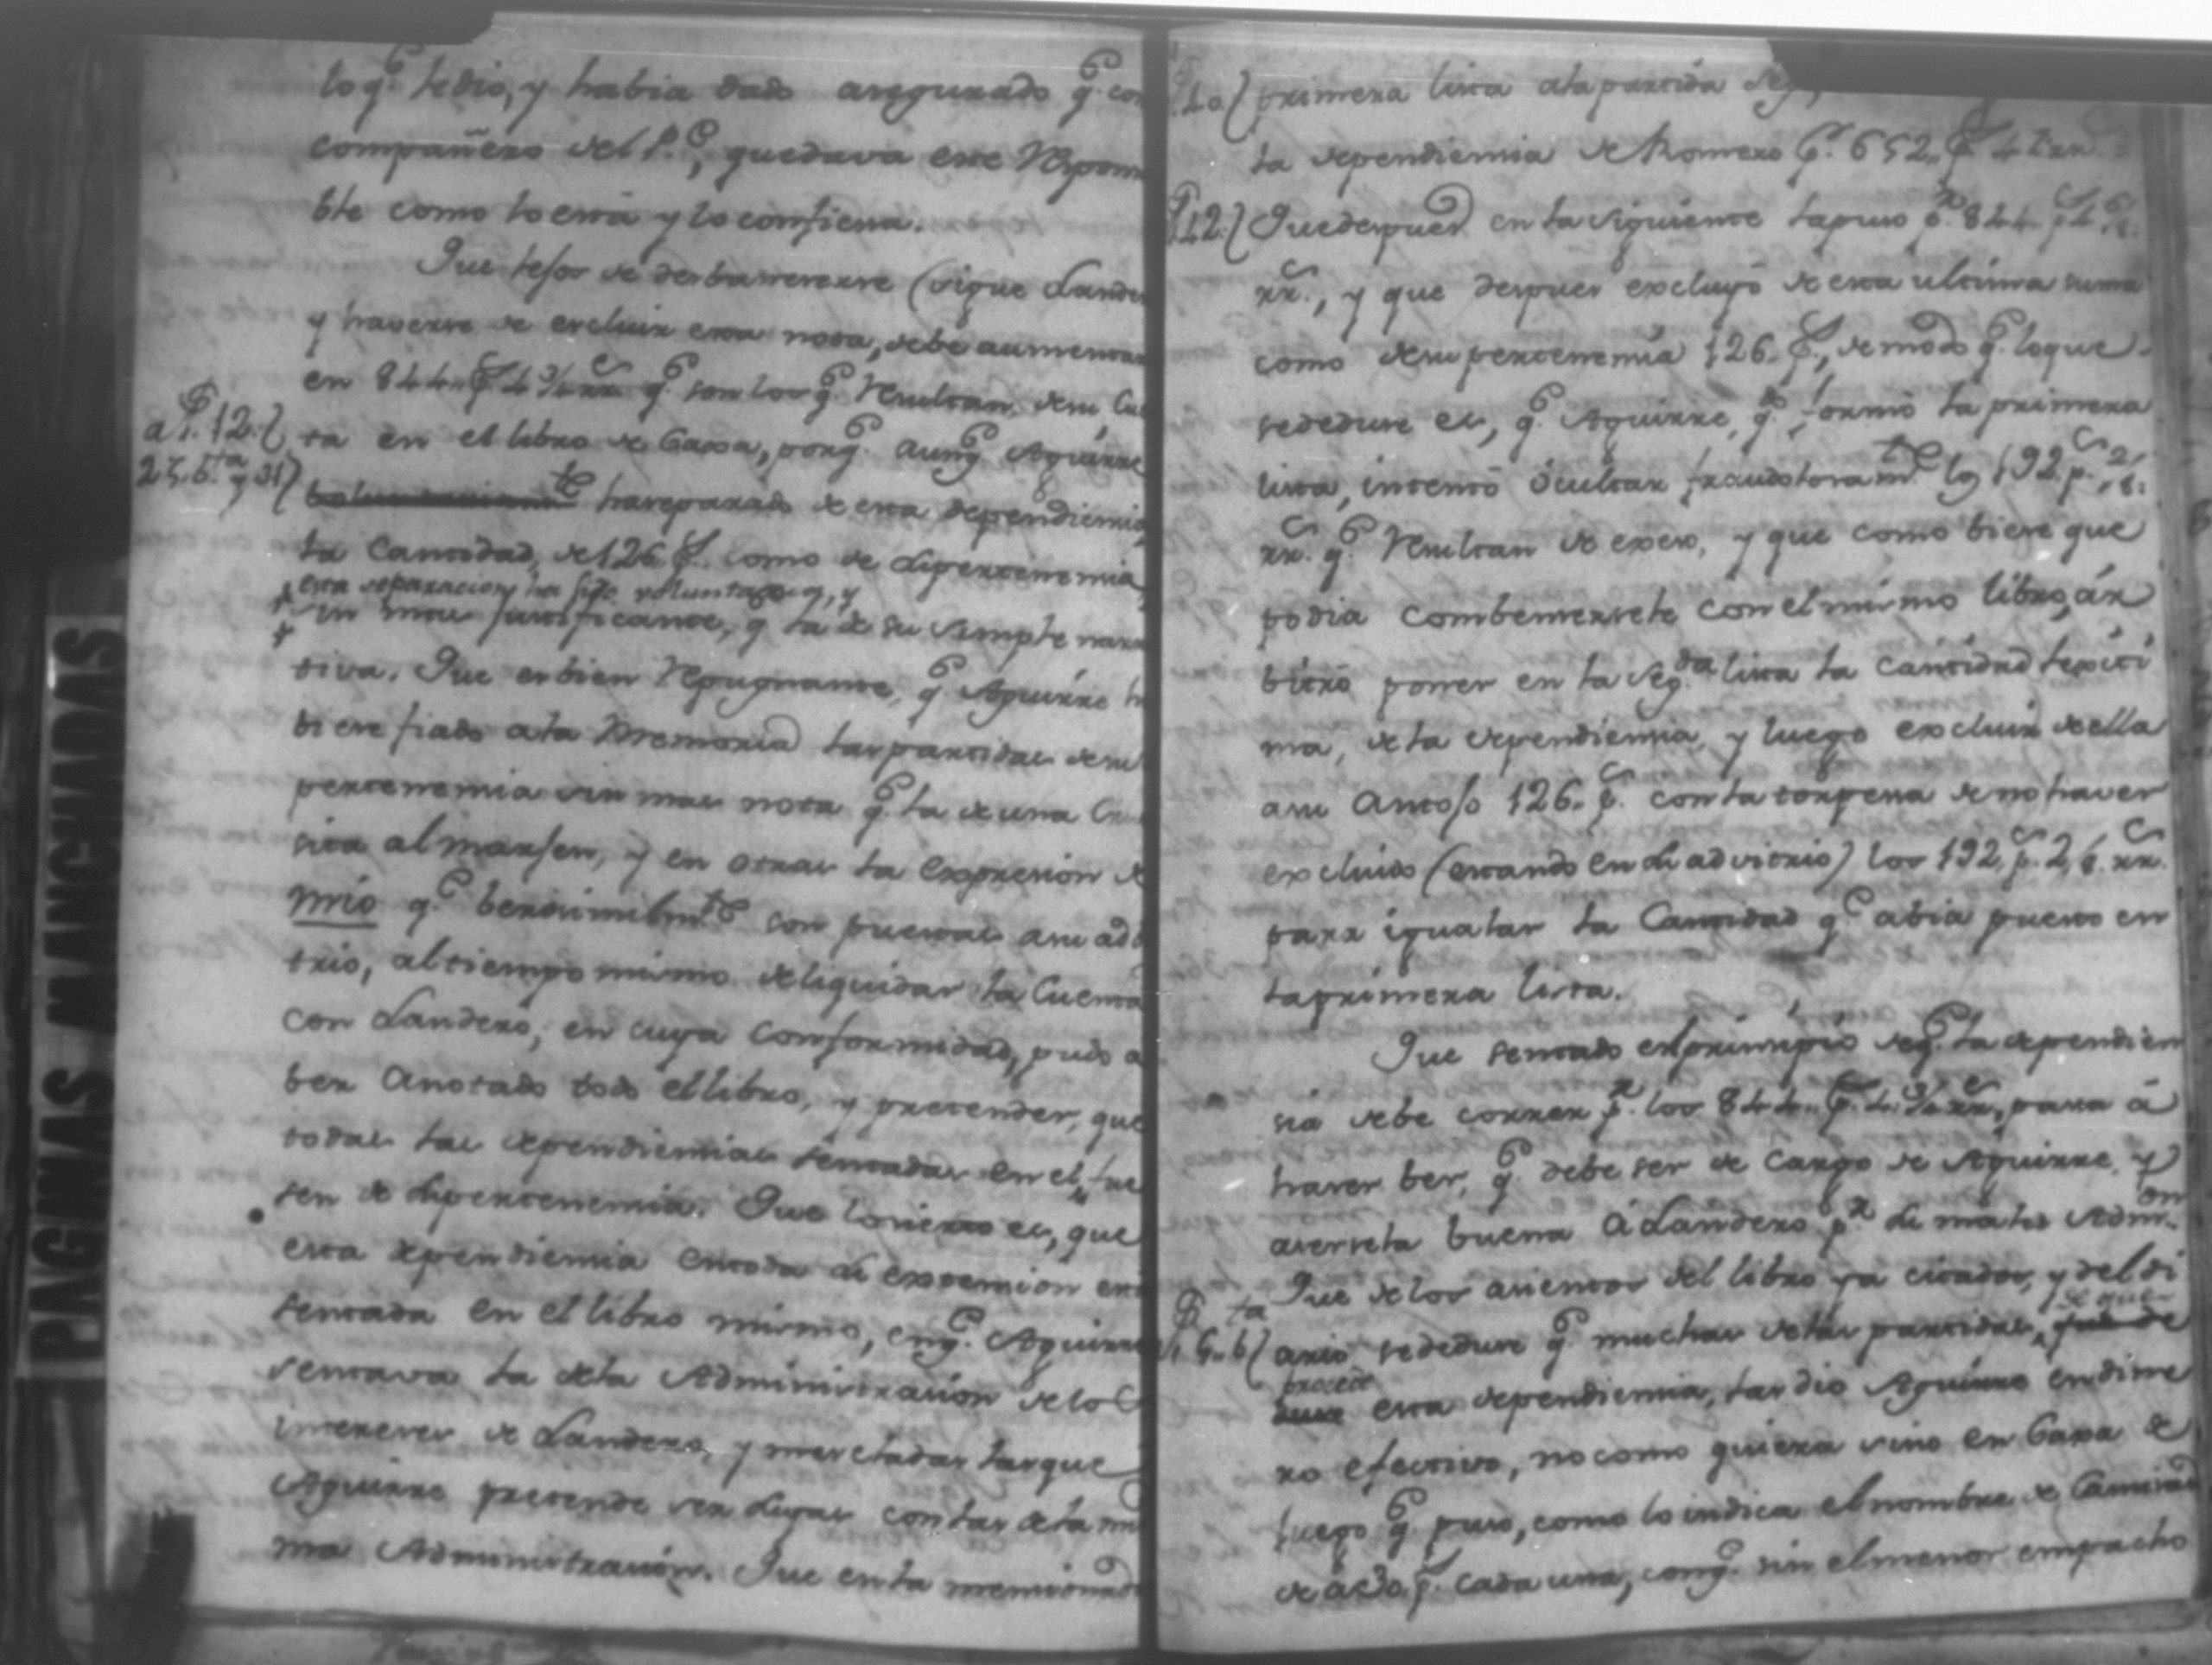 lo q.e le dio, y habia dado asegurado q.e con
compañero del P.e, quedava este Respon
ble como lo está y lo confiesa.
Que lejos de desbanecerse (sigue Lande
y haverse de excluir esta nota, debe aumentar
en 844. p.s 4 3/4 rr.s q.e son los q.e Resultan, de su Cu
a f. 12.
ta en el libro de Caxa, porq.e aunq.e Aguirre
25. b.ta y 31
haseparado de esta dependiencia
la Cantidad, de 126 p.s como de supertenencia
esta separacion ha sido voluntaria, y
sin mas justificante, q la de su simple narra
tiva. Que es bien Repugnante, q.e Aguirre hu
biese fiado ala Memoria las partidas desu
pertenencia sin mas nota q.e la de una Cru
sita al marjen, y en otras la expresion de
mio q.e berosimilm.te son puestas asu adbi
trio, al tiempo mismo deliquidar la Cuenta
con Landero, en cuya conformidad, pudo a
ber anotado todo el libro, y pretender, que
todas las dependiencias sentadas en el, fue
sen de supertenencia. Que lo cierto es, que
esta dependiencia entoda su extencion está
sentada en el libro mismo, enq.e Aguirre
sentava la dela Administracion delos
intereses de Landero, y mescladas las que
Aguirre pretende ser suyas con las dela mis
ma Administracion. Que en la mencionada
primera lista ala partida
la dependiencia de Romero p.r 652. p.s 4 rr.s
f. 12.
Que despues en la siguiente la puso p.r 844. p.s 4 3/4
rr.s, y que despues excluyó de esta ultima suma
como desu pertenencia 126. p.s, de modo q.e lo que
sededuce es, q.e Aguirre, q.do formó la primera
lista, intentó ocultar fraudolosam.te los 192. p.s 2/8.
rr.s q.e Resultan de exeso, y que como biese que
podia combensersele con el mismo libro, ár
bitró poner en la Seg.da lista la cantidad lexiti
ma, dela dependiencia, y luego excluir de ella
asu antojo 126. p.s con la torpesa de no haver
excluido (estando en su advitrio) los 192. p.s 2/8. rr.s
para igualar la Cantidad q.e abia puesto en
la primera lista.
Que sentado el principio deq.e la dependien
sia debe correr p.r los 844. p.s 4. 3/4 rr.s, pasa á
hacer ber, q.e debe ser de cargo de Aguirre, y
asersela buena á Landero p.r su mala Adm.on
Que delos asientos del libro ya citados, y del di
f. 5. b.ta
ario sededuce q.e muchas delas partidas, de que
procede esta dependiencia, las dio Aguirre en dine
ro efectivo, no como quiera sino en Caxa de
juego q.e puso, como lo indica el nombre de Camisas
de á 30. p.s cada una, conq.e sin el menor empacho